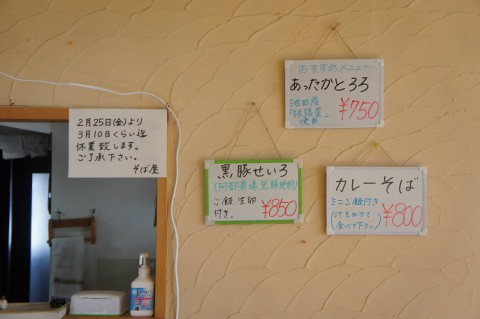 2月25日(金)より
3月10日くらい迄
休業致します。
ご了承下さい。
そば屋
おすすめメニュー
あったかとろろ
池田産
使用
¥750
黒豚せいろ
(阿部農場黒豚使用)
ご飯生卵
付き。
¥850
カレーそば
ミニご飯付き
(汁をかけて
食べて下さい)
¥800